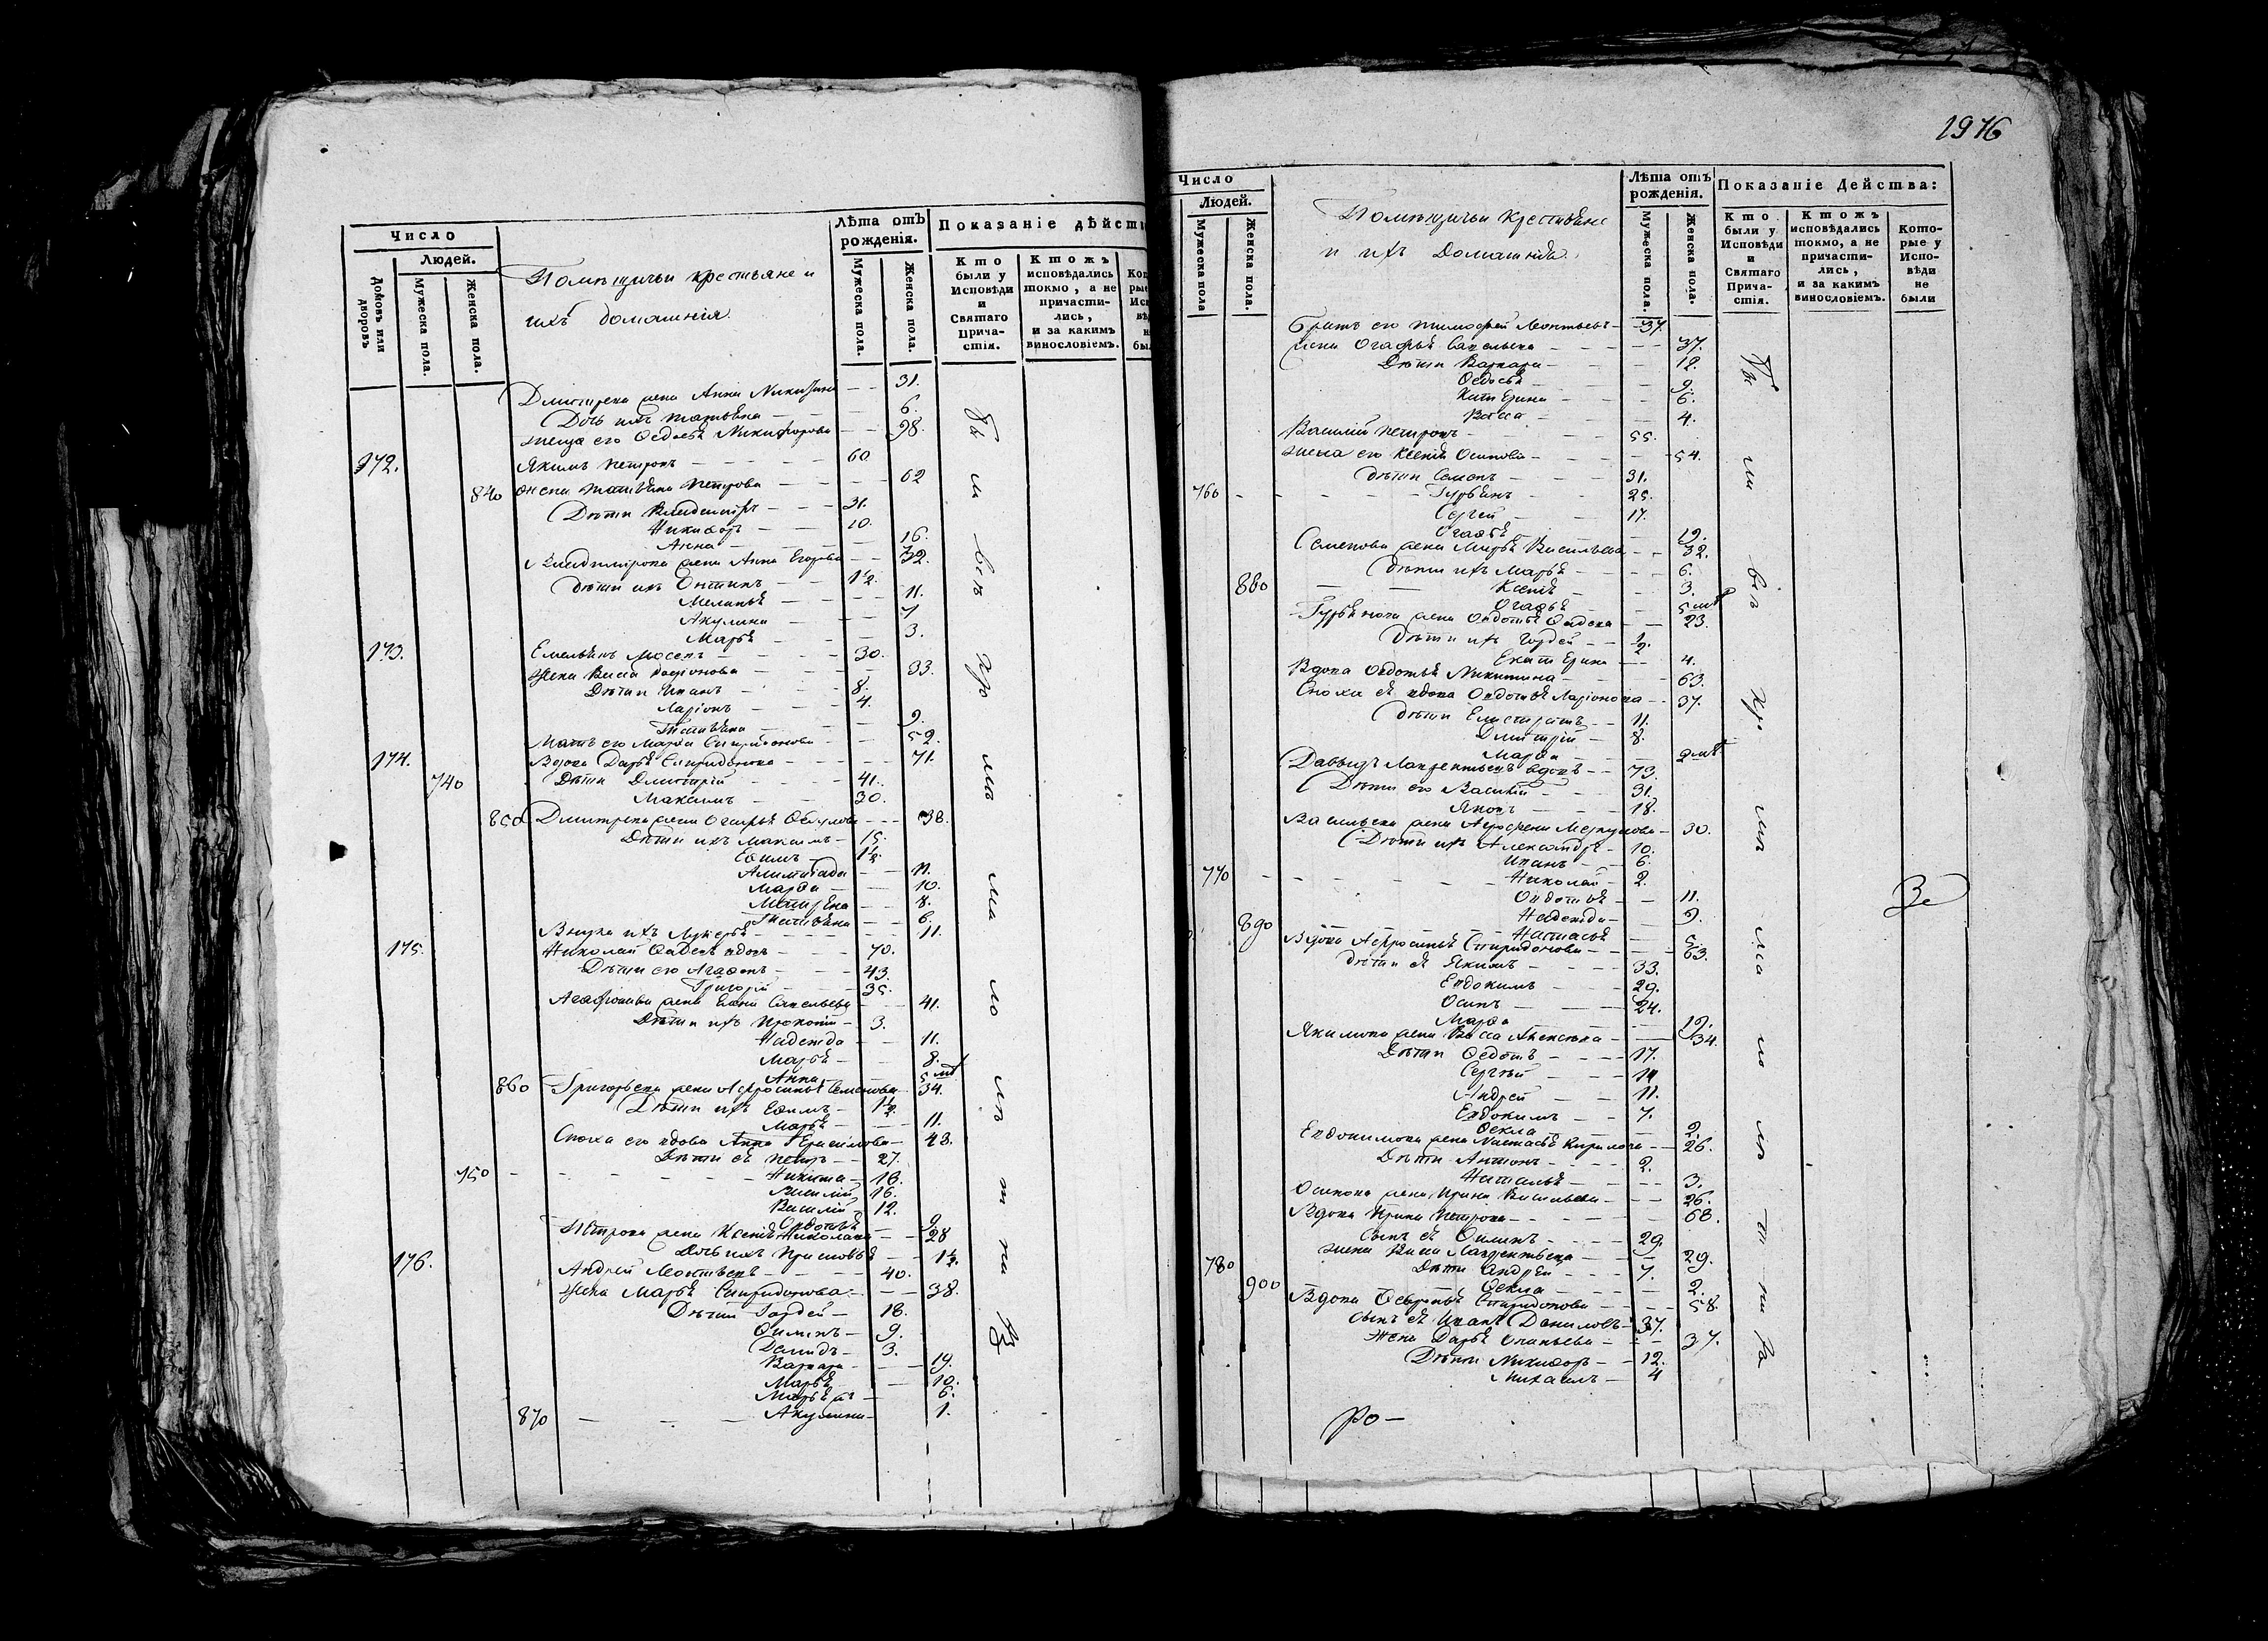 Число
Людей.
Домовъ или дворовъ
Мужеска пола.
Женска пола.
Помѣщичьи крестьяне и
ихъ домашнія
Лѣта отъ рожденія.
Мужеска пола.
Женска пола.
Показаніе дѣйств
Кто были у Исповѣди и Святаго Прича-стія.
Ктожъ исповѣдались токмо, а не причасти-лись, и за какимъ винословіемъ.
Дмитрева жена Анна 31.
Дочь ихъ Татьяна 6.
теща его Ѳедосья Никифорова 98.
172. Якимъ Петровъ 60
840 жена Татьяна Петрова 62
Дѣти Владимиръ 31.
Никифоръ 10.
Анна 16.
Владимірова жена Анна Егорова 32.
Дѣти ихъ 1½.
Меланья 11.
Акулина 7
Марья 3.
173. Емельянъ 30.
жена Васса 33.
Дѣти Иванъ 8.
Ларіонъ 4.
Татьяна 9.
Мать его Марфа Спиридонова 52.
174. Вдова Дарья Спиридонова 71.
740 Дѣти Дмитрій 41.
Максимъ 30.
850 Дмитрева жена 38.
Дѣти ихъ Максимъ 15.
Ефимъ 1½.
11.
Марфа 10.
Матрена 8.
Татьяна 6.
Внука ихъ Лукерья 11.
175. Николай вдовъ 70.
Дѣти его Агафонъ 43.
Григорій 35.
Агафонова жена Савельева 41.
Дѣти ихъ Прокопій 3.
Надежда 11.
Марья 8.
Анна 5 мѣ
860 Григорьева жена Афросинья Семенова 34.
Дѣти ихъ Ефимъ 1½.
Марья 11.
Сноха его вдова Анна Герасимова 48.
Дѣти ея Петръ 27.
750 Никита 18.
Василій 16.
Василій 12.
Авдотья 9.
Петрова жена Ксенія 28
Дочь ихъ 1½.
176. Андрей Леонтьевъ 40.
жена Марья Спиридонова 38.
Дѣти Гордей 18.
9.
Давидъ 3.
Варвара 19.
Марья 10.
Марья 6.
870 Акулина 1.
1976
Число
Людей.
Мужеска пола
Женска пола.
Помѣщичьи Крестьяне
и ихъ Домашнія.
Лѣта отъ рожденія.
Мужеска пола.
Женска пола.
Показаніе Действа:
Кто были у Исповѣди и Святаго Прича-стія.
Ктожъ исповѣдались токмо, а не причасти-лись, и за какимъ винословіемъ.
Кото-рые у Испо-вѣди не были
Братъ его Тимофей Леонтьевъ 37.
жена Огафья Савельева 37.
Дѣти Варвара 12.
Ѳедосья 9.
Катерина 6.
Васса 4.
Василій Петровъ 55.
жена его Ксенія Осипова 54.
Дѣти Семенъ 31.
760 Гурьянъ 25.
Сергей 17.
Огафья 19.
Семенова жена Марья Васильева 32.
Дѣти ихъ Марья 6.
880 Ксенія 3.
Огафья 5 мѣ
Гурьянова жена Авдотья 23.
Дѣти ихъ Гордей ½.
Екатерина 4.
Вдова Авдотья Никитина 63.
Сноха ея вдова Авдотья Ларіонова 37.
Дѣти Елистратъ 11.
Дмитрій 8.
Марфа 9 мѣ
Давыдъ Лаврентьевъ вдовъ 73.
Дѣти его Василій 31.
Яковъ 18.
Васильева жена Аграфена Меркулова 30.
Дѣти ихъ Александръ 10.
Иванъ 6.
770 Николай 2.
Авдотья 11.
Надежда 9.
890 Настасья 5.
Вдова Афросинья Спиридонова 63.
Дѣти ея Якимъ 33.
Евдокимъ 29.
Осипъ 24.
Марфа 19.
Якимова жена Васса Алексѣева 34.
Дѣти Ѳедотъ 17.
Сергѣй 14
Андрей 11.
Евдокимъ 7.
Ѳекла 2.
Евдокимова жена Настасья Кирилова 26.
Дѣти Антонъ 2.
Наталья 3.
Осипова жена Ирина Васильева 26.
Вдова Ирина Петрова 68.
Сынъ ея 29.
жена Васса Лаврентьева 29.
780 Дѣти Андрей 7.
900 Ѳекла 2.
Вдова Спиридонова 58.
сынъ ея Иванъ Даниловъ 37.
жена Дарья 37.
Дѣти Никифоръ 12.
Михаилъ 4
ро—